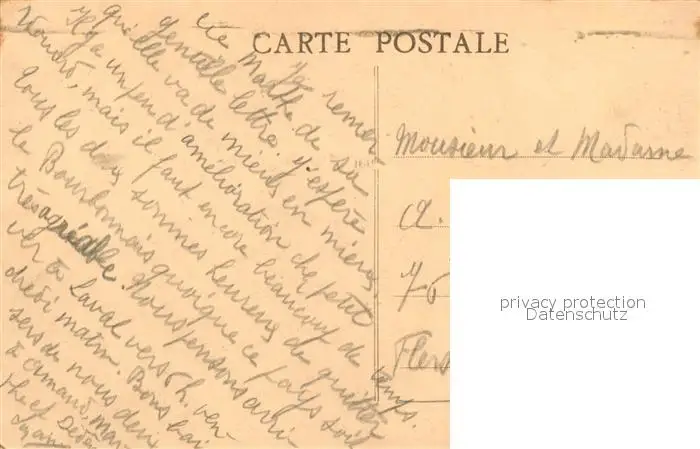 CARTE POSTALE
Je remer
cie Marthe de sa
gentille lettre, j'espère
qu'elle va de mieux en mieux
Il y a un peu d'amélioration chez petit
mais il faut encore beaucoup de temps.
tous les deux sommes heureux de quitter
le Bourbonnais quoique ce pays soit
très agréable. Nous pensons arri
ver à Laval vers 5 h. ven
dredi matin. Bons bai
sers de nous deux
à Armand, Mar
the et Dédé
Monsieur et Madame
A.
76
Flers
privacy protection
Datenschutz